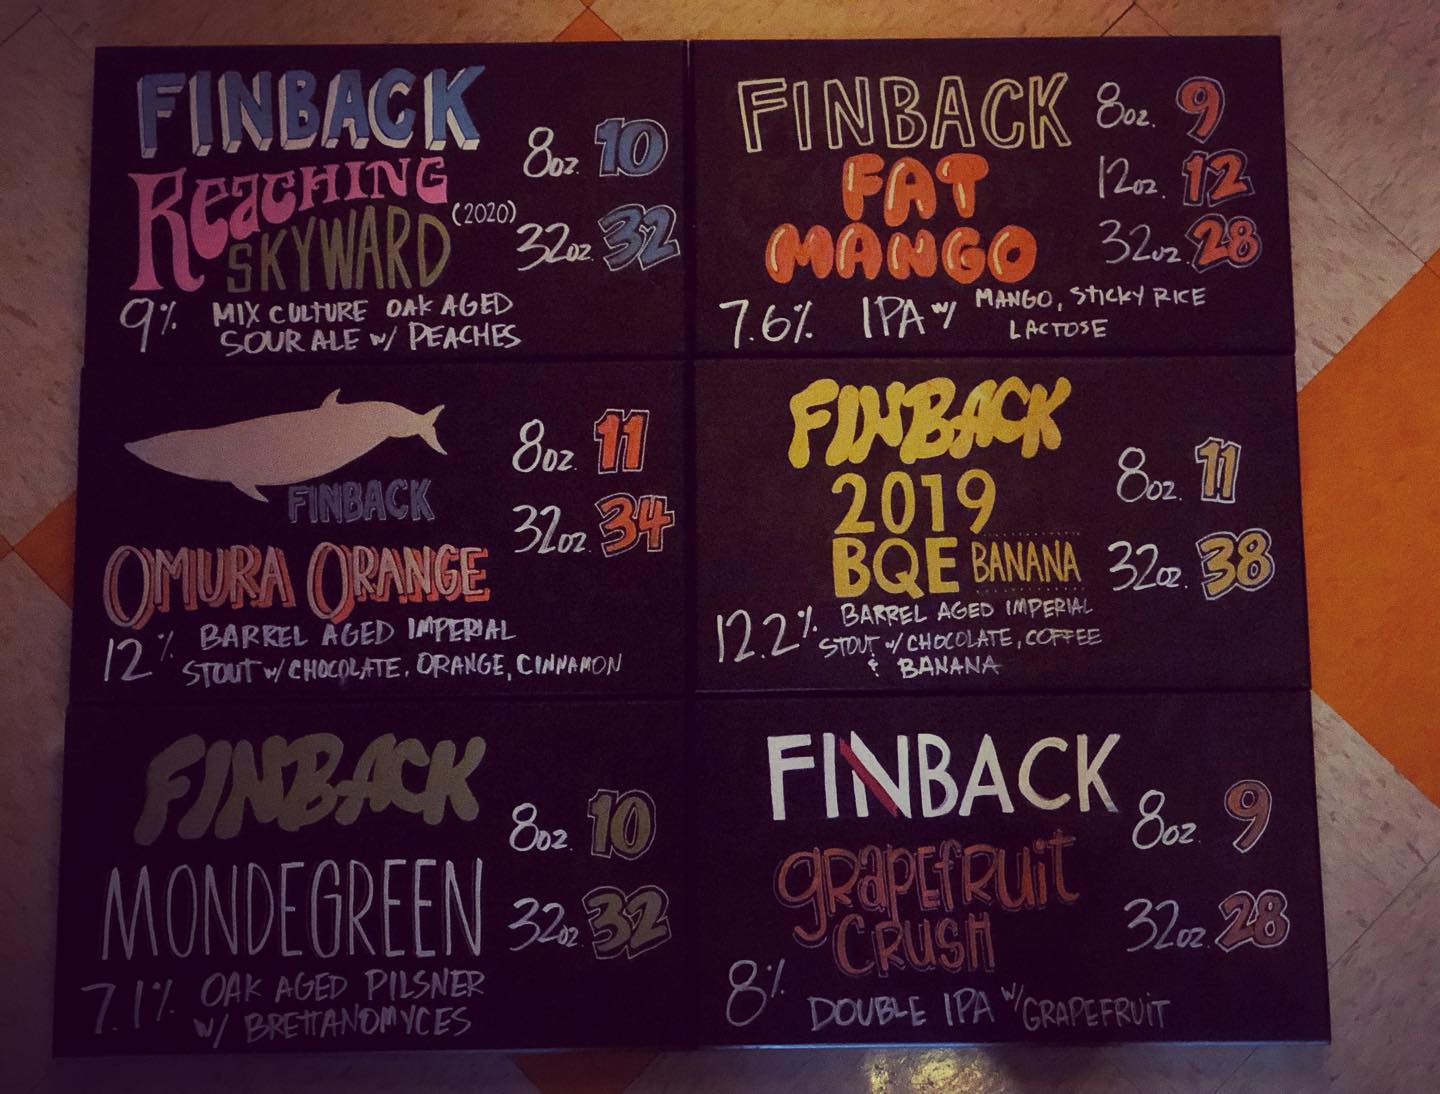 FINBACK
REACHING
SKYWARD (2020)
8oz. 10
32oz. 32
9% MIX CULTURE OAK AGED
SOUR ALE w/ PEACHES
FINBACK
FAT
MANGO
8oz. 9
12oz. 12
32oz. 28
7.6% IPA w/ MANGO, STICKY RICE
LACTOSE
FINBACK
OMURA ORANGE
8oz. 11
32oz. 34
12% BARREL AGED IMPERIAL
STOUT w/ CHOCOLATE, ORANGE, CINNAMON
FINBACK
2019
BQE BANANA
8oz. 11
32oz. 38
12.2% BARREL AGED IMPERIAL
STOUT w/ CHOCOLATE, COFFEE
& BANANA
FINBACK
MONDEGREEN
8oz. 10
32oz. 32
7.1% OAK AGED PILSNER
w/ BRETTANOMYCES
FINBACK
GRAPEFRUIT
CRUSH
8oz. 9
32oz. 28
8% DOUBLE IPA w/ GRAPEFRUIT